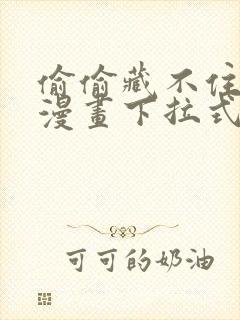 偷偷藏不住
漫畫下拉式
可可的奶油